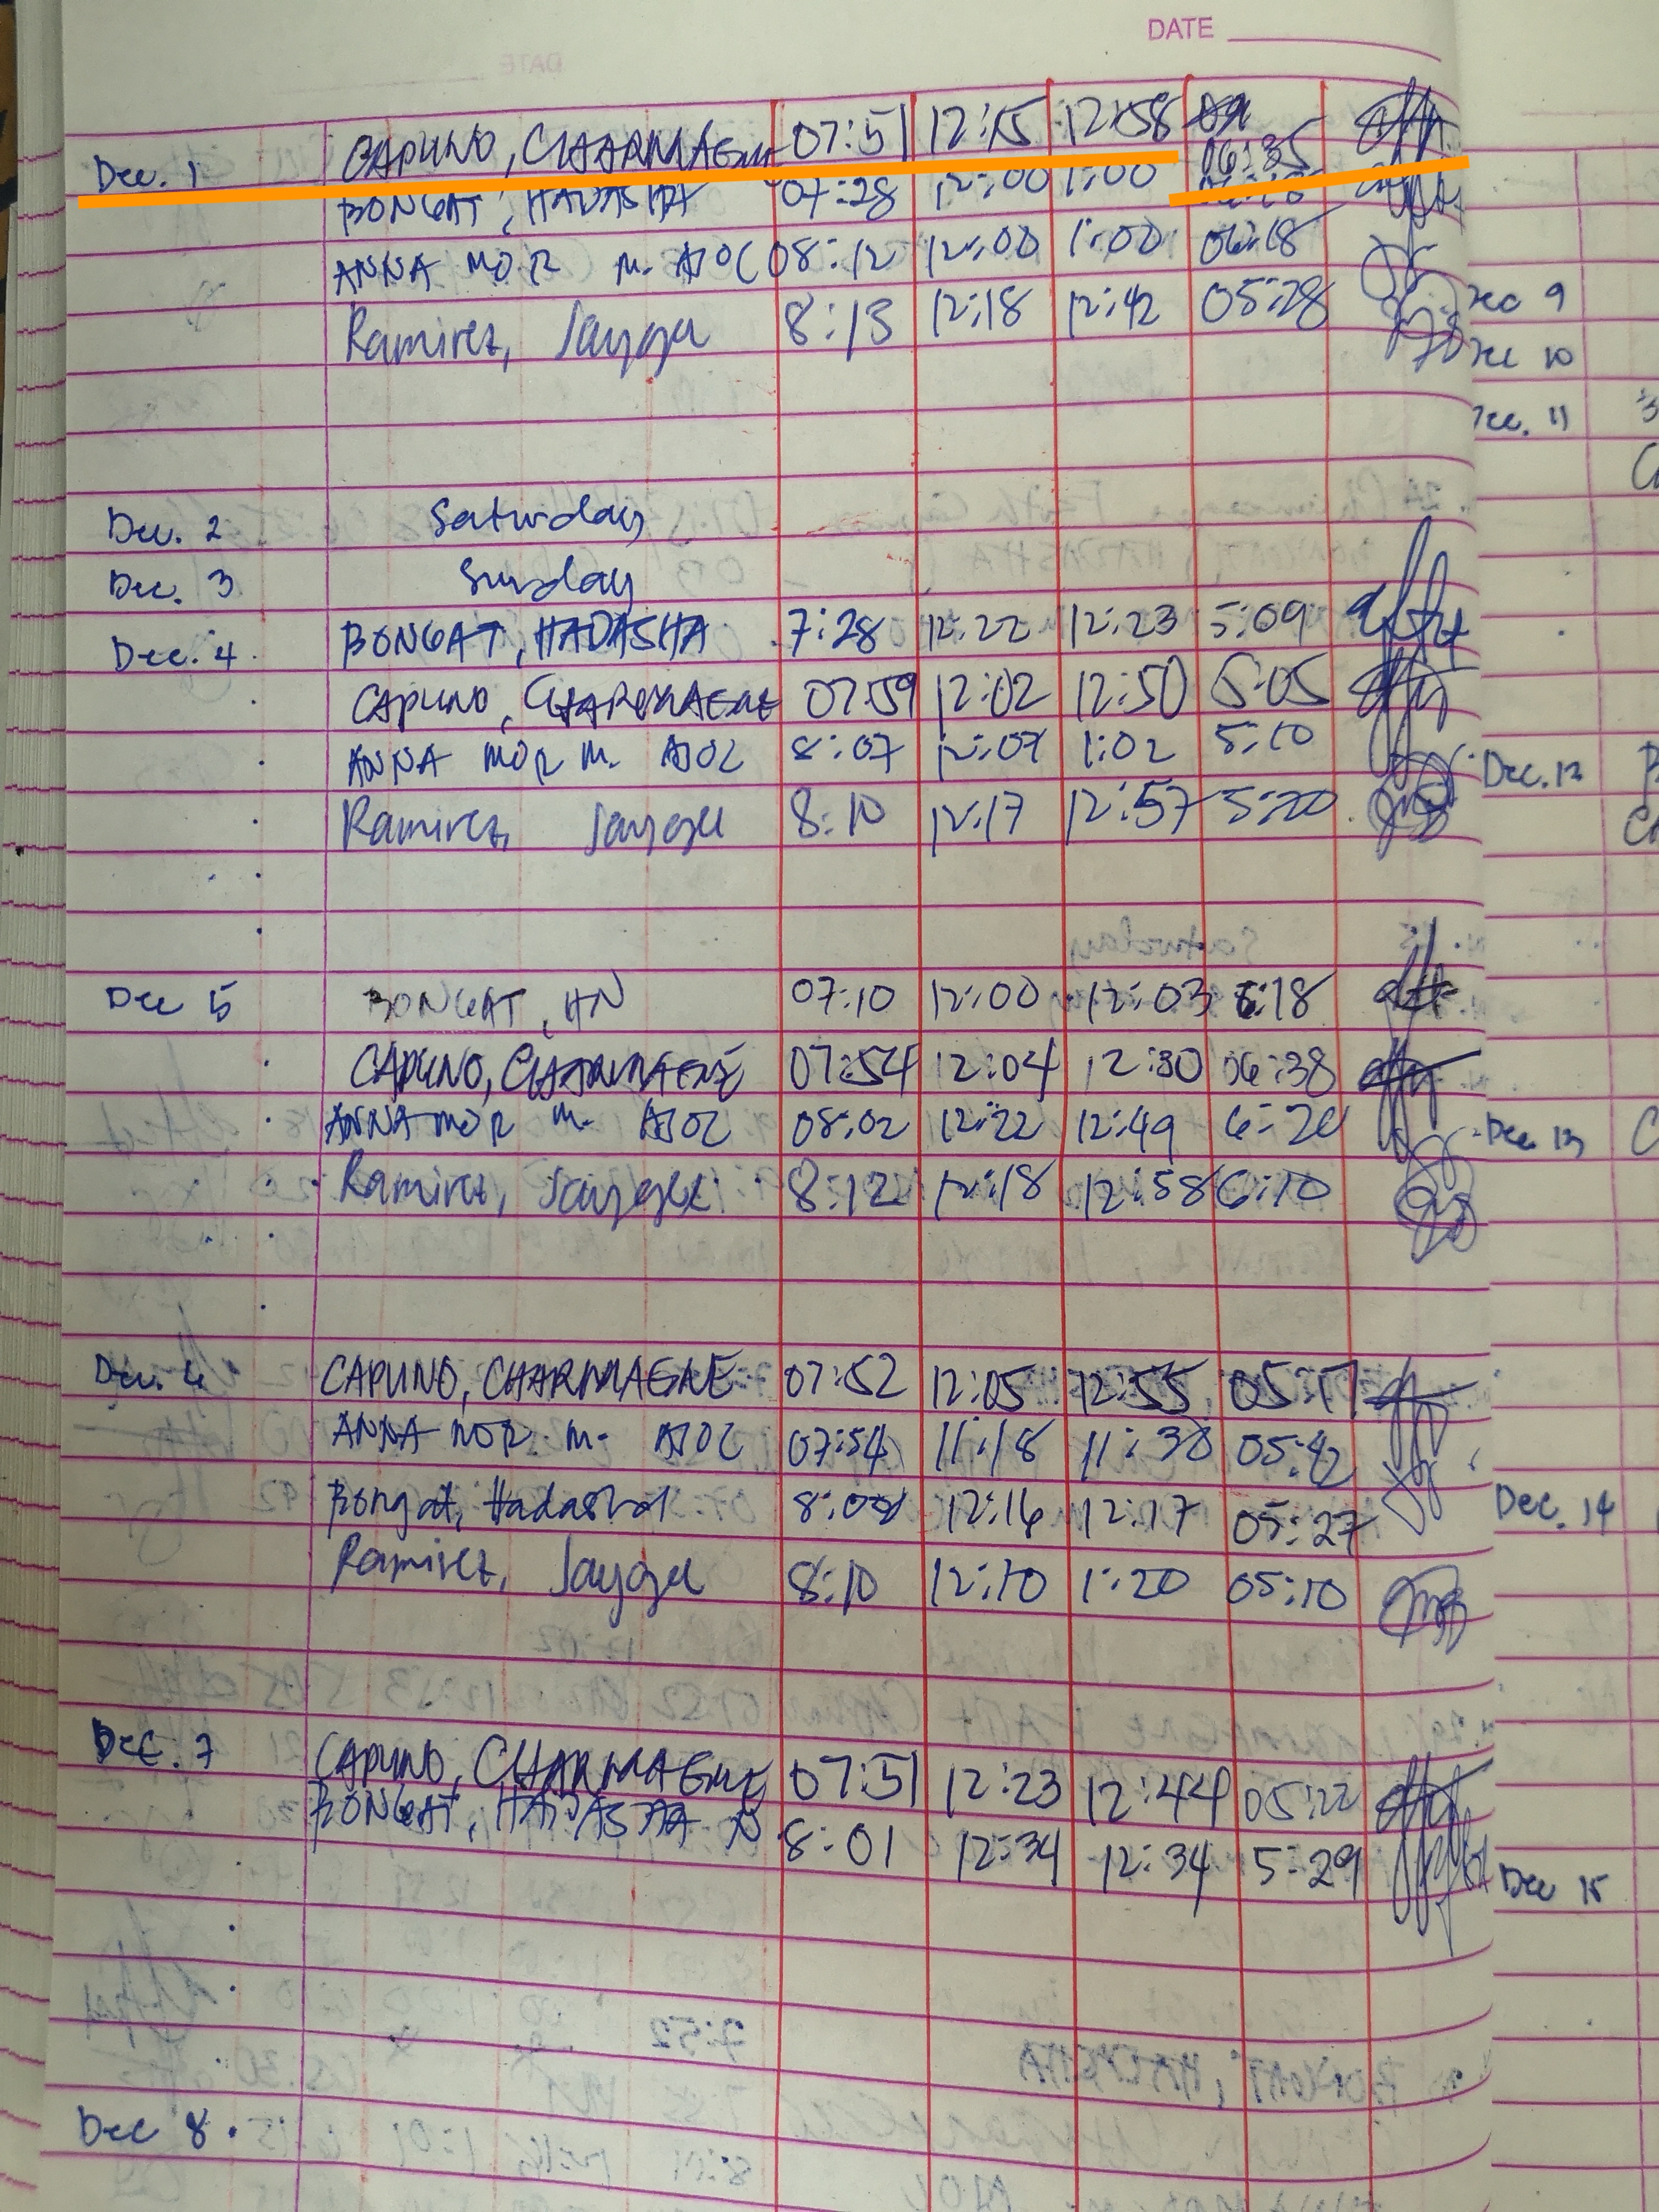 DATE
Dec. 1 CAPUNO, CHARMAGNE 07:51 12:15 12:58 06:35
BONGAT, HADASHA 07:28 12:00 1:00
ANNA MOR M. AJOC 08:12 12:00 1:00 06:18
Ramirez, Jaygee 8:13 12:18 12:42 05:28
Dec. 2 Saturday
Dec. 3 Sunday
Dec. 4 BONGAT, HADASHA 7:28 12:22 12:23 5:09
CAPUNO, CHARMAGNE 07:59 12:02 12:50 5:05
ANNA MOR M. AJOC 8:07 12:07 1:02 5:10
Ramirez, Jaygee 8:10 12:17 12:57 5:20
Dec 5 BONGAT, HN 07:10 12:00 12:03 6:18
CAPUNO, CHARMAGNE 07:54 12:04 12:30 06:38
ANNA MOR M. AJOC 08:02 12:22 12:49 6:20
Ramirez, Jaygee 8:12 12:18 12:58 6:10
Dec. 6 CAPUNO, CHARMAGNE 07:52 12:05 12:55 05:17
ANNA MOR M. AJOC 07:54 11:18 11:30 05:42
Bongat, Hadasha 8:00 12:16 12:17 05:27
Ramirez, Jaygee 8:10 12:10 1:20 05:10
Dec. 7 CAPUNO, CHARMAGNE 07:51 12:23 12:44 05:22
BONGAT, HADASHA N 8:01 12:34 12:34 5:29
Dec 8
Dec 9
Dec 10
Dec. 11
Dec. 12
Dec 13
Dec. 14
Dec 15